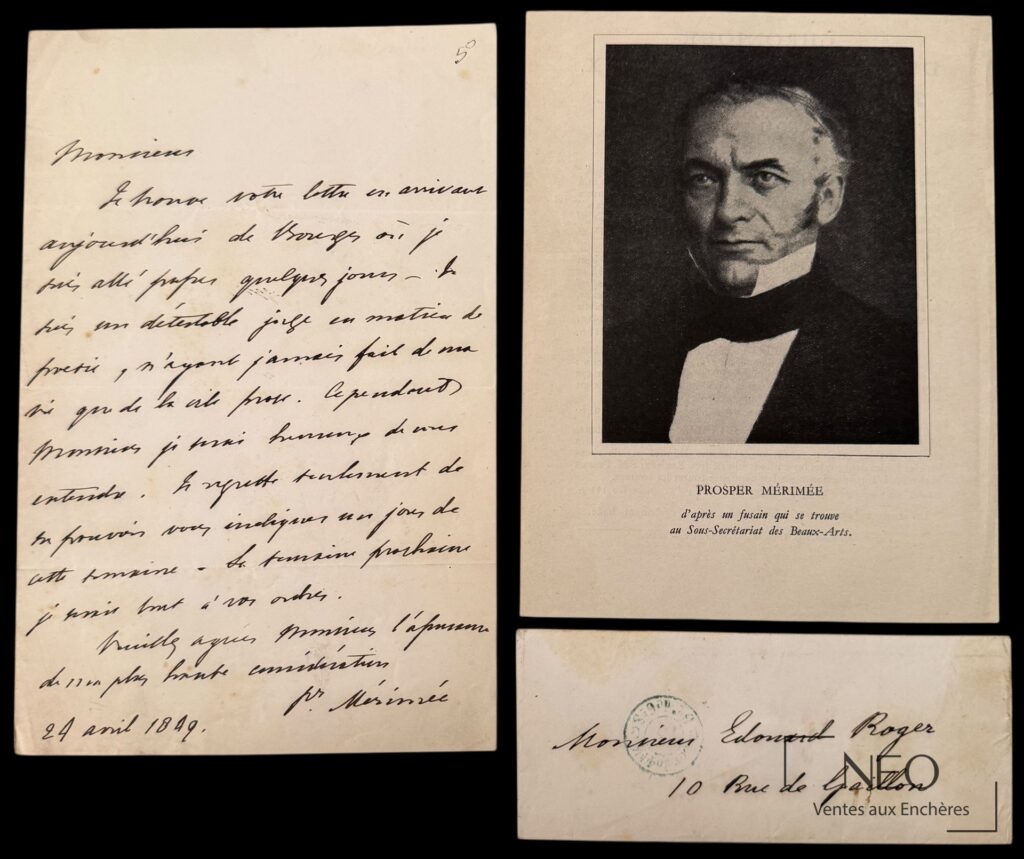 50
Monsieur
Je trouve votre lettre en arrivant
aujourd'hui de Bourges où je
suis allé passer quelques jours – Je
suis un détestable juge en matière de
poésie, n'ayant jamais fait de ma
vie que de la vile prose. Cependant
Monsieur je serai heureux de vous
entendre. Je regrette seulement de
ne pouvoir vous indiquer un jour de
cette semaine – La semaine prochaine
je serai tout à vos ordres.
Veuillez agréer Monsieur l'assurance
de ma plus haute considération
Pr Mérimée
24 avril 1849.
PROSPER MÉRIMÉE
d'après un fusain qui se trouve
au Sous-Secrétariat des Beaux-Arts.
Monsieur Edouard Roger
10 Rue de Gaillon
NEO
Ventes aux Enchères